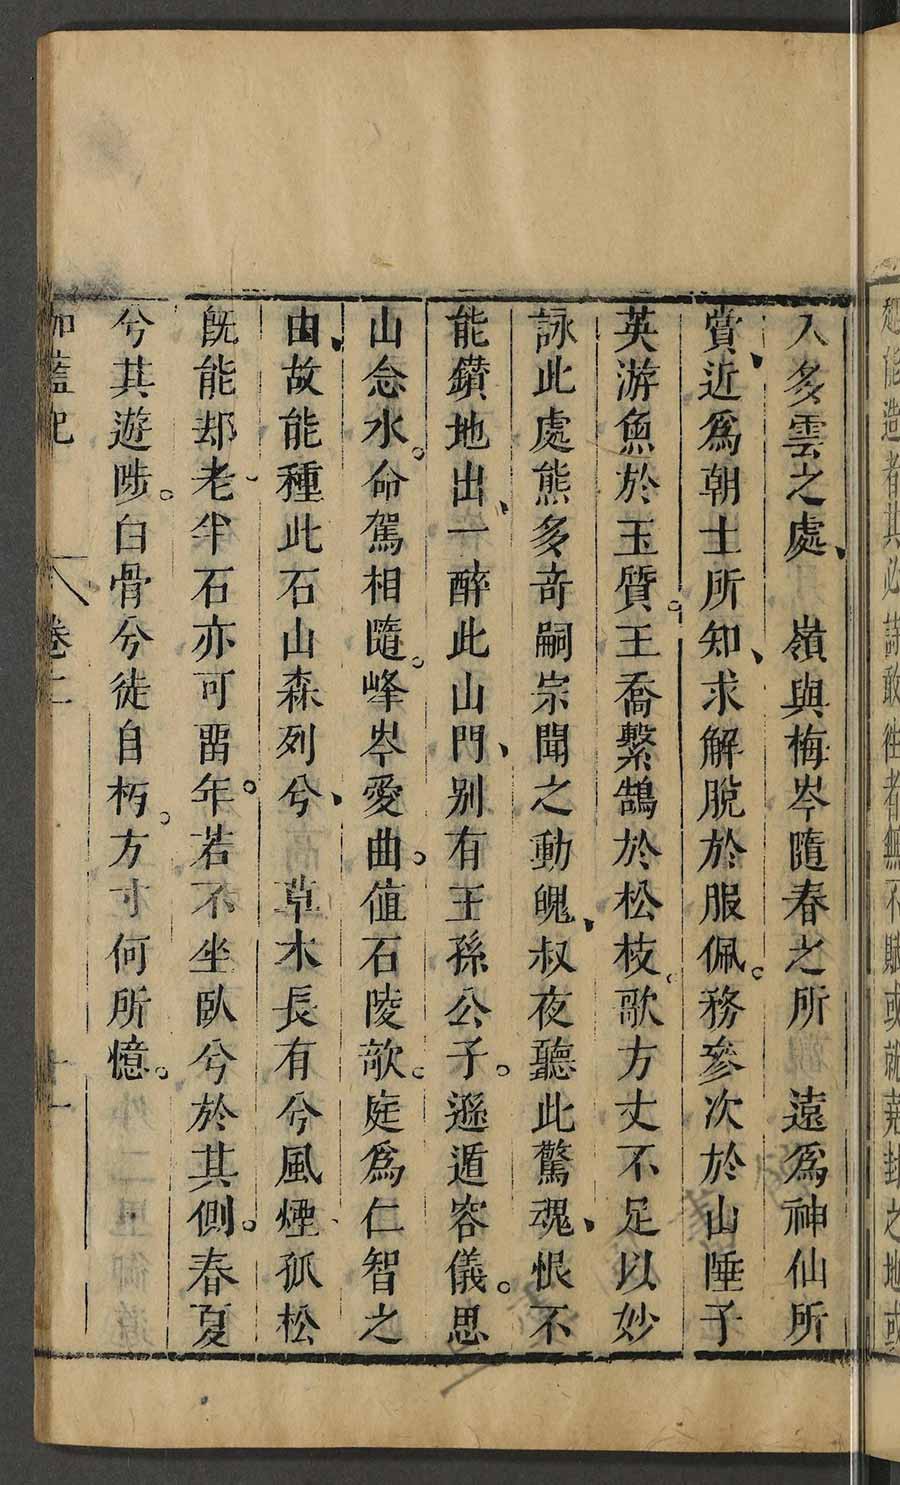 人多雲之處、嶺與梅岑隨春之所遠爲神仙所
賞、近爲朝士所知、求解脫於服佩。務參次於山陲子
英游魚於玉質。王喬繫鵠於松枝。歌方丈不足以妙
詠此處熊多奇嗣宗聞之動魄、叔夜聽此驚魂、恨不
能鑚地出、一醉此山門、别有王孫公子。遜遁容儀。思
山念水。命駕相隨。峰岑愛曲。値石陵欹。庭爲仁智之
由、故能種此石山森列兮、草木長有兮風煙孤松
旣能却老、半石亦可畱年。若不坐臥兮於其側。春夏
兮其遊陟。白骨兮徒自朽。方寸何所憶。
伽藍記 卷二 十一